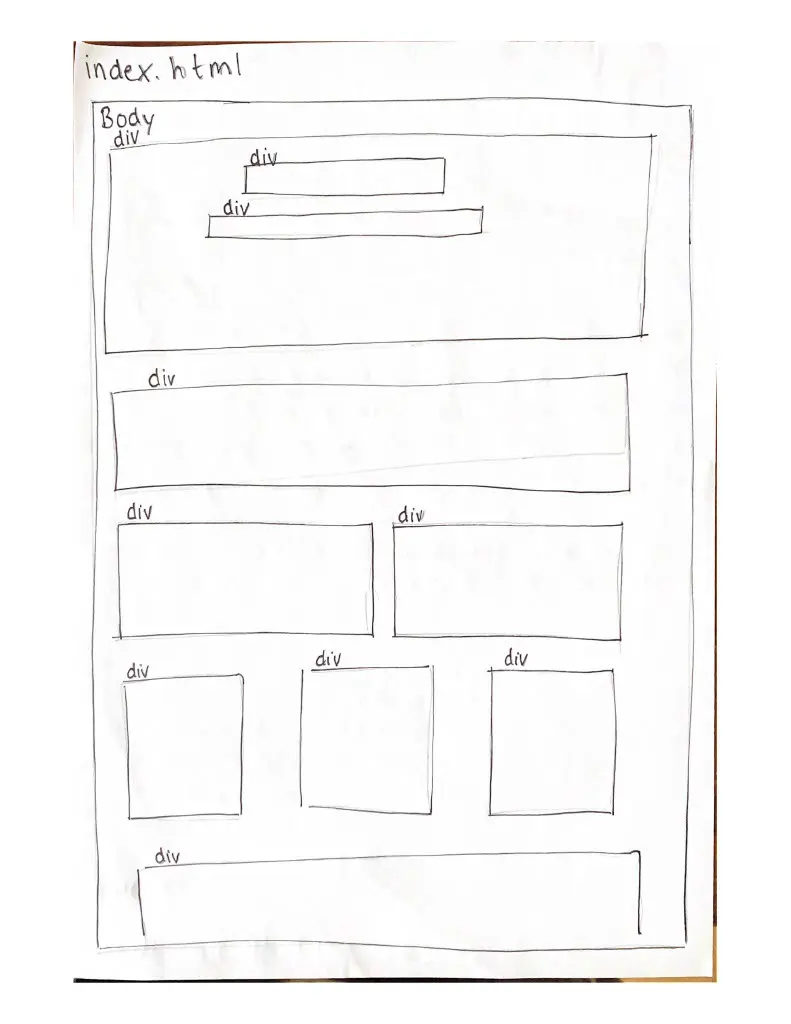 index.html
Body
div
div
div
div
div
div
div
div
div
div